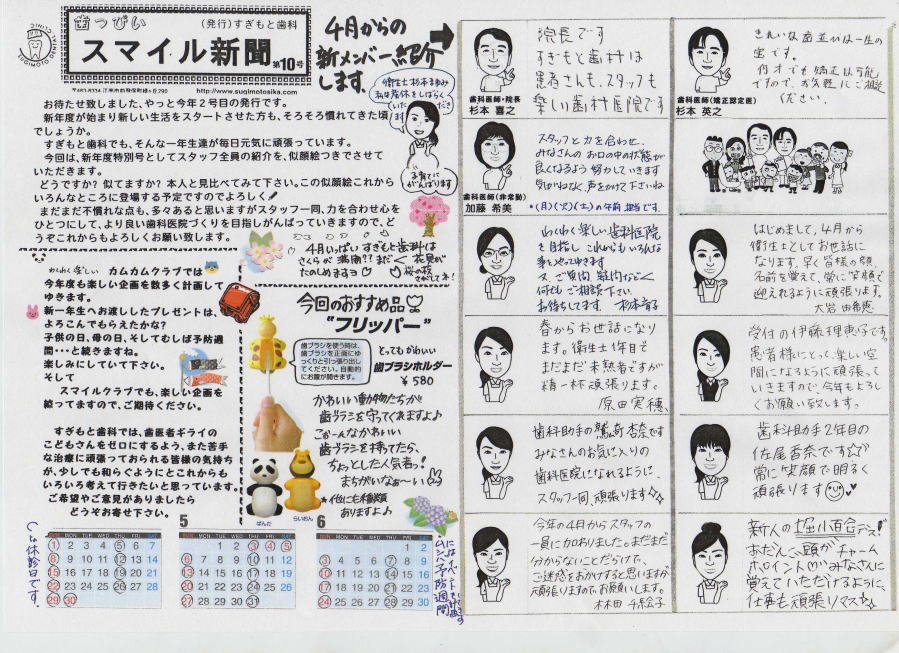 歯っぴい
（発行）すぎもと歯科
スマイル新聞 第10号
http://www.sugimotosika.com
4月からの
新メンバー紹介
します。
お待たせ致しました、やっと今年２号目の発行です。
新年度が始まり新しい生活をスタートさせた方も、そろそろ慣れてきた頃
でしょうか。
すぎもと歯科でも、そんな一年生達が毎日元気に頑張っています。
今回は、新年度特別号としてスタッフ全員の紹介を、似顔絵つきでさせて
いただきます。
どうですか？ 似てますか？ 本人と見比べてみて下さい。この似顔絵これから
いろんなところに登場する予定ですのでよろしく
まだまだ不慣れな点も、多々あると思いますがスタッフ一同、力を合わせ心を
ひとつにして、より良い歯科医院づくりを目指しがんばっていきますので、ど
うぞこれからもよろしくお願い致します。
衛生士 杉本まゆみ
私は産休をしばらく
いただき
ます
子育てに
がんばります
4月いっぱい すぎもと歯科は
さくらが 満開?? まだく 花見が
たのしめますヨ
桜の枝
さがしてネ!
わくわく楽しい カムカムクラブでは
今年度も楽しい企画を数多く計画して
ゆきます。
新一年生へお渡ししたプレゼントは、
よろこんでもらえたかな？
子供の日、母の日、そしてむし歯予防週
間・・・と続きますね。
楽しみにしていて下さい。
そして
スマイルクラブでも、楽しい企画を
絞ってますので、ご期待ください。
すぎもと歯科では、歯医者ギライの
こどもさんをゼロにするよう、また苦手
な治療に頑張っておられる皆様の気持ち
が、少しでも和らぐようにとこれからも
いろいろ考えて行きたいと思っています。
ご希望やご意見がありましたら
どうぞお寄せ下さい。
今回のおすすめ品
"フリッパー"
歯ブラシを使う時は、
歯ブラシを正面にゆ
っくりと引っ張り出し
てください。自動的
にお腹が開きます。
とってもかわいい
歯ブラシホルダー
￥580
かわいい動物たちが
歯ブラシを守ってくれますよ♪
こぉ〜んなかわいい
歯ブラシを持ってたら、
ちょっとした人気者!
まちがいなぁ〜い
★他にも種類
ありますよ♪
ぱんだ
らいおん
○は休診日です。
SUN MON TUE WED THU FRI SAT
1 2 3 4 5 6 7
8 9 10 11 12 13 14
15 16 17 18 19 20 21
22 23 24 25 26 27 28
29 30
5
SUN MON TUE WED THU FRI SAT
1 2 3 4 5
6 7 8 9 10 11 12
13 14 15 16 17 18 19
20 21 22 23 24 25 26
27 28 29 30 31
6
SUN MON TUE WED THU FRI SAT
1 2
3 4 5 6 7 8 9
10 11 12 13 14 15 16
17 18 19 20 21 22 23
24 25 26 27 28 29 30
ムシバ予防週間
院長です
すぎもと歯科は
患者さんも、スタッフも
楽しい歯科医院です
歯科医師・院長
杉本 喜之
きれいな歯並びは一生の
宝です。
何才でも矯正は可能
ですので、お気軽にご相談
ください。
歯科医師（矯正認定医）
杉本 英之
スタッフと力を合わせ、
みなさんのお口の中の状態が
良くなるよう努力していきます
気がねなく、声をかけて下さいね
*(月)(火)(土)の午前担当です。
歯科医師（非常勤）
加藤 希美
わくわく楽しい歯科医院
を目指し これからもいろんな
事をやってゆきます
又、ご質問、疑問など
何でもご相談下さい
お待ちしてます。
はじめまして、4月から
衛生士としてお世話に
なります。早く皆様の顔、
名前を覚えて、常に笑顔で
迎えれるように頑張ります。
大岩 由希恵
春からお世話になり
ます。衛生士1年目で
まだまだ未熟者ですが
精一杯頑張ります。
原田 実穂
受付の伊藤理恵子です。
患者様にとって楽しい空
間になるように頑張って
いきますので今年もよろし
くお願い致します。
歯科助手の鷲崎杏奈です
みなさんのお気に入りの
歯科医院になれるように
スタッフ一同、頑張ります☆
歯科助手2年目の
佐尾香奈ですが
常に笑顔で明るく
頑張ります♥
今年の4月からスタッフの
一員に加わりました。まだまだ
分からないことだらけで、
ご迷惑をおかけすると思いますが
頑張りますのでお願いします。
新人の土屈小百合デス!
おだんご頭がチャーム
ポイントでみなさんに
覚えていただけるように、
仕事も頑張リマス☆